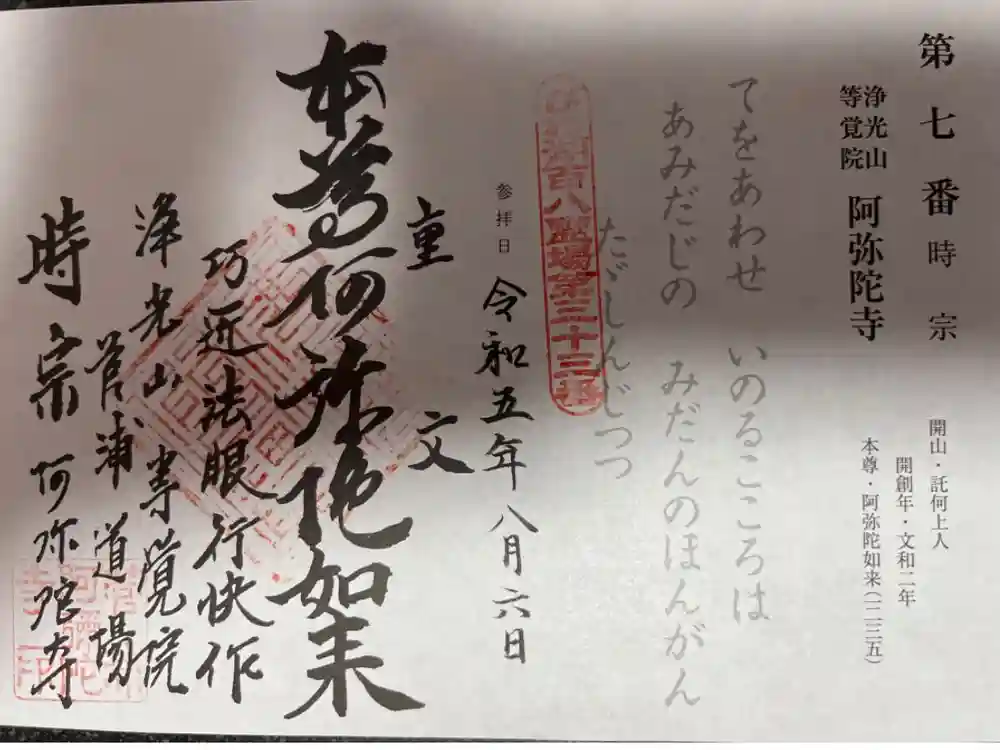 第七番 時宗
開山・託何上人
開創年・文和二年
本尊・阿弥陀如来(一二三五)
浄光山
等覚院
阿弥陀寺
てをあわせ いのるこころは
あみだじの みだんのほんがん
たゞしんじつつ
百八霊場第三十三番
参拝日
令和五年八月六日
重文
本尊阿弥陀如来
巧匠法眼行快作
浄光山 等覚院
菅浦道場
時宗阿弥陀寺